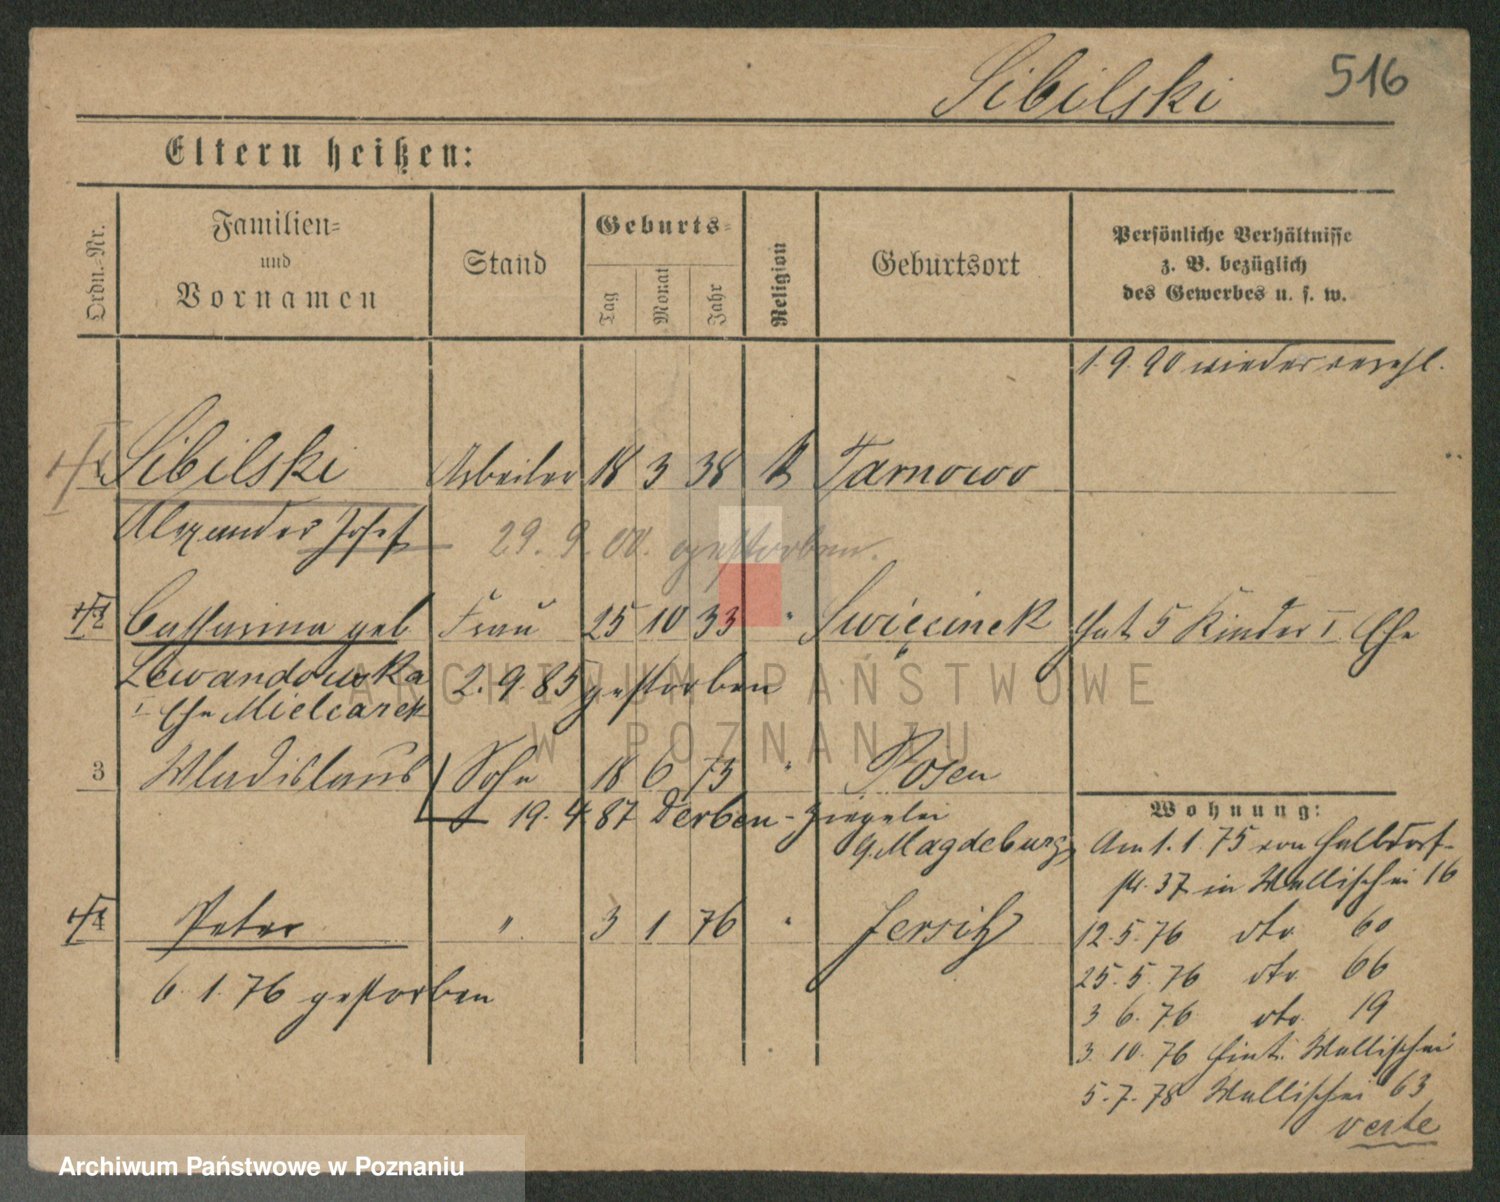 Sibilski 516
Eltern heißen:
Ordn.-Nr.
Familien-
und
Vornamen
Stand
Geburts-
Tag Monat Jahr
Religion
Geburtsort
Persönliche Verhältnisse
z. B. bezüglich
des Gewerbes u. s. w.
1. 9. 90 wieder
Sibilski Arbeiter 18 3 38 k Tarnowo
Alexander Josef
29. 9. 00. gestorben.
2 Catharina geb Frau 25 10 33 " Swięcinek hat 5 Kinder I Ehe
Lewandowska 2. 9. 85 gestorben
I Ehe Mielcarek
3 Wladislaus Sohn 18 6 73 " Posen
19. 4. 87 Derben-Ziegelei
Magdeburg
4 Peter " 3 1 76 " Jersitz
6. 1. 76 gestorben
Wohnung:
Am 1. 1. 75 von Halbdorf-
str. 37 in Wallischei 16
12. 5. 76 dto 60
25. 5. 76 dto 66
3 6. 76 dto 19
3. 10. 76 Hint. Wallischei
5. 7. 78 Wallischei 63
verte
ARCHIWUM PAŃSTWOWE
W POZNANIU
Archiwum Państwowe w Poznaniu